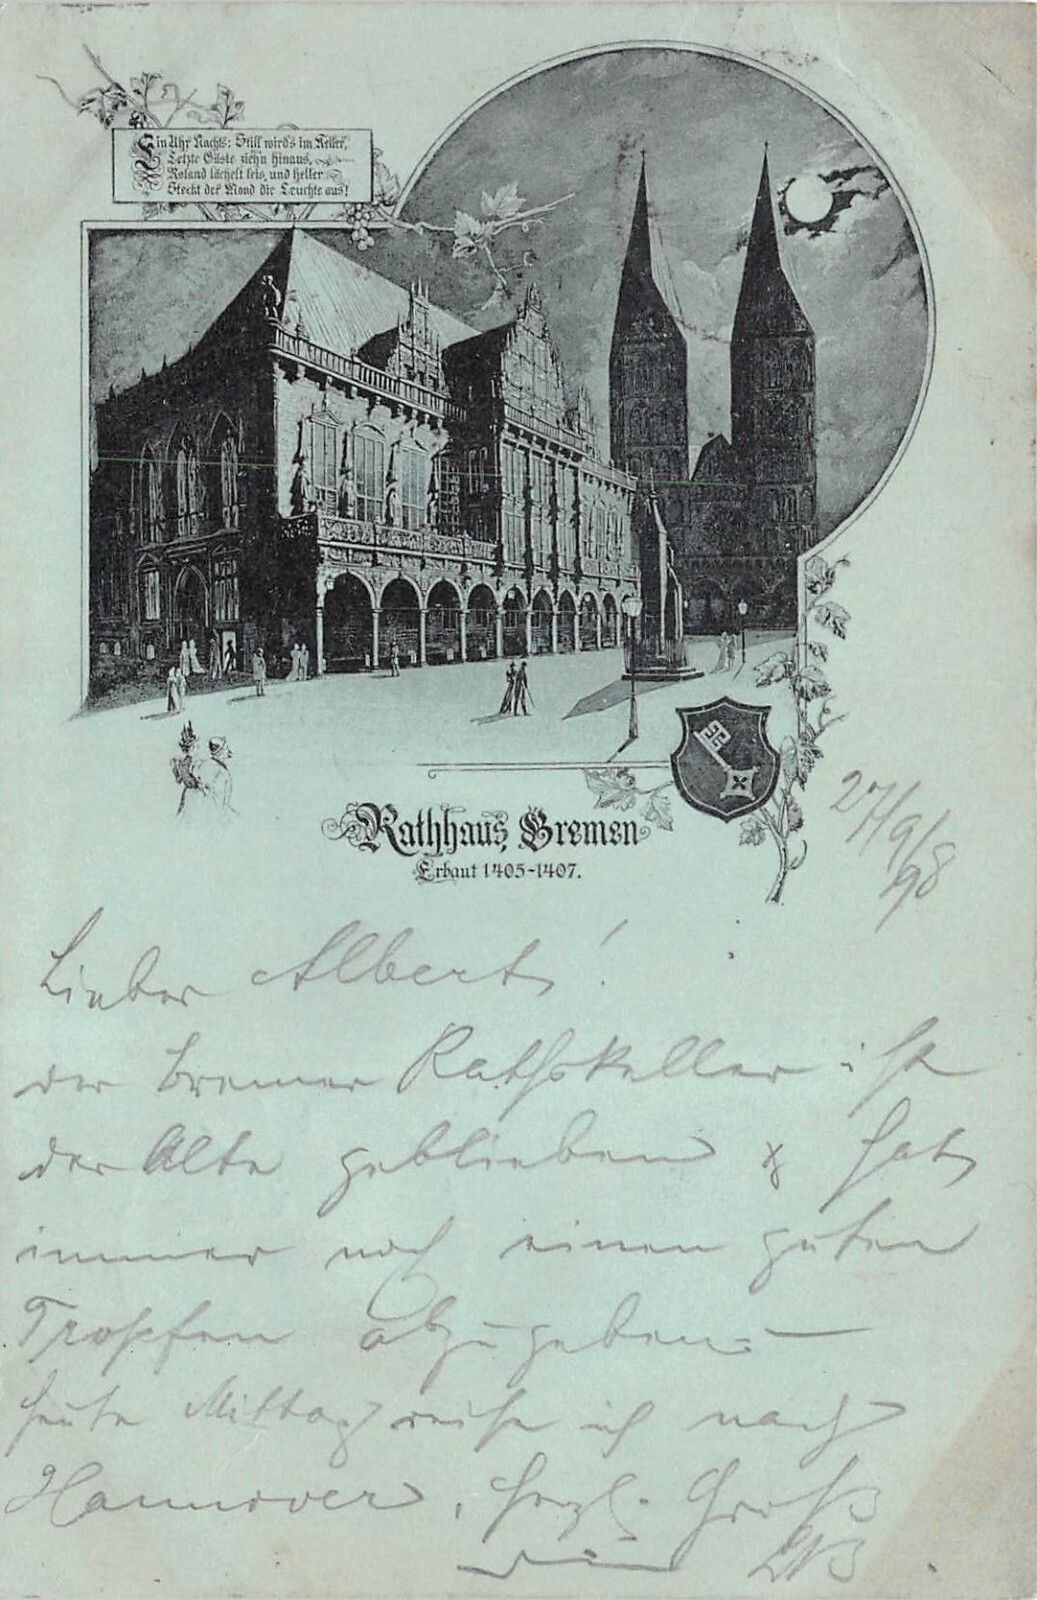 Ein Uhr Nachts: Still wird's im Keller,
Letzte Gäste ziehn hinaus,
Roland lächelt leis, und heller
Steckt der Mond die Leuchte aus!
Rathhaus, Bremen
Erbaut 1405-1407.
27/9/98
Lieber Albert!
der Bremer Rathskeller ist
der Alte geblieben & hat
immer noch einen guten
Tropfen abzugeben. —
Heute Mittag reise ich nach
Hannover, Herzl. Gruß
dein